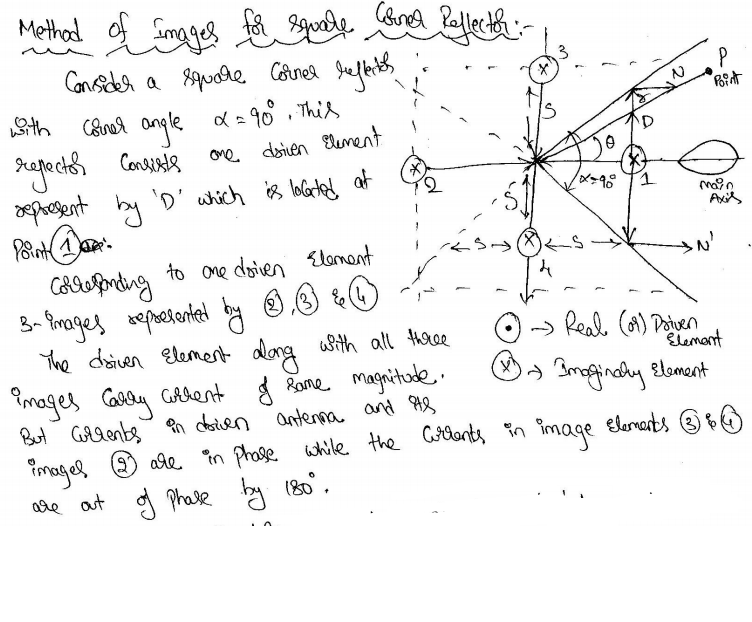 Method of Images for square Corner Reflector :-
Consider a square Corner reflector
with Corner angle α = 90°. This
reflector consists one driven element
represent by 'D' which is located at
Point ①
Corresponding to one driven Element
3-images represented by ②, ③ & ④
The driven Element along with all three
images carry current of same magnitude.
But currents in driven antenna and its
images ② are in phase while the currents in image elements ③ & ④
are out of phase by 180°.
3
P
Point
N
S
D
θ
2
α=90°
1
main
Axis
S
S
S
N'
4
→ Real (or) Driven
Element
→ Imaginary Element